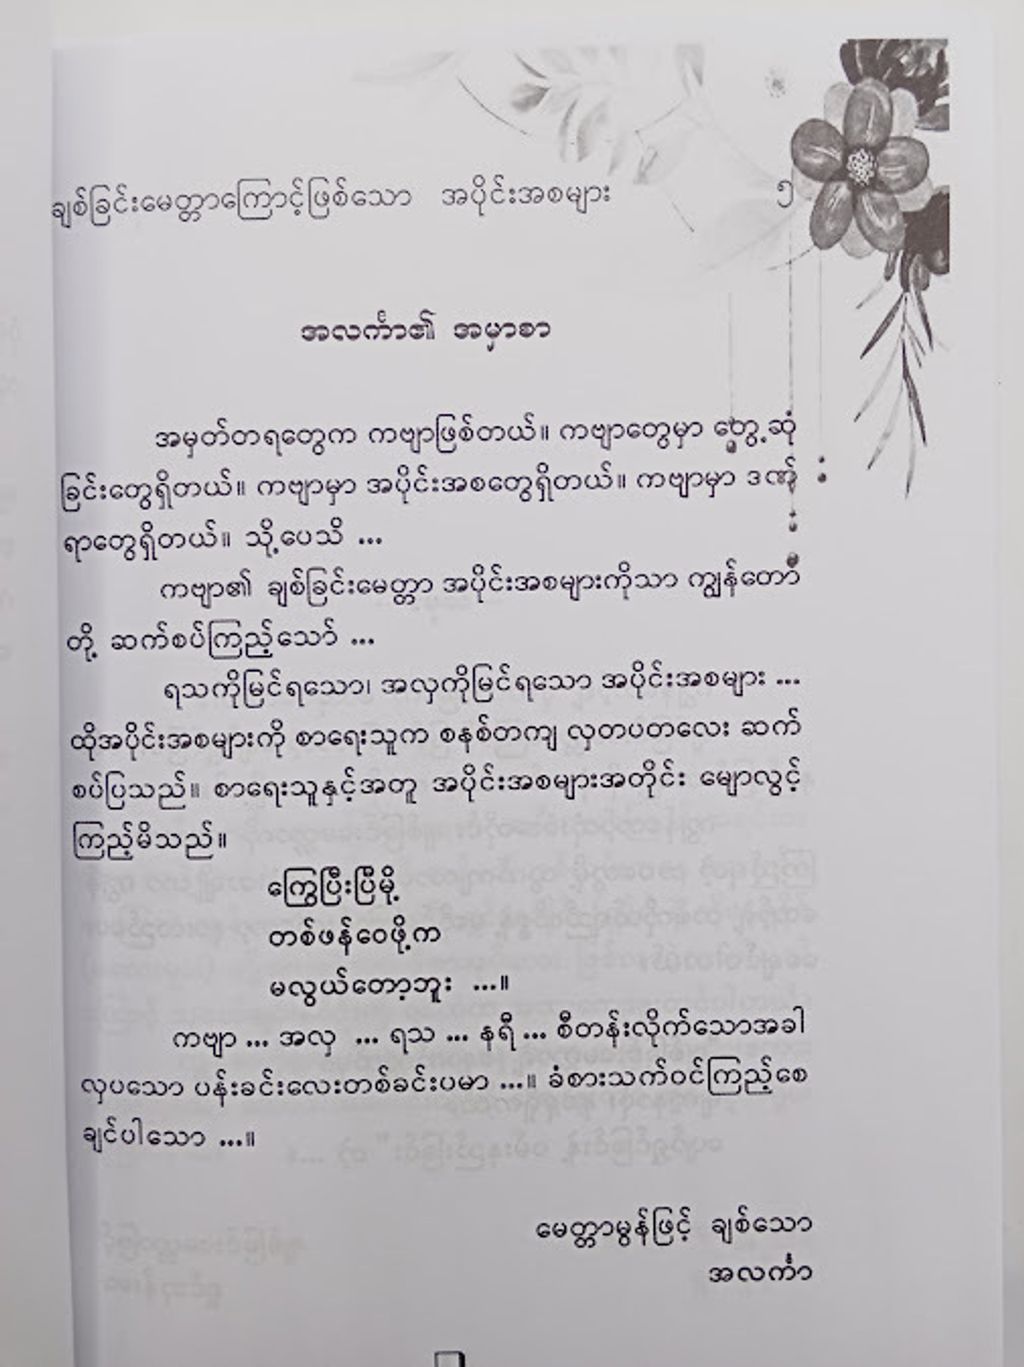 ချစ်ခြင်းမေတ္တာကြောင့်ဖြစ်သော အပိုင်းအစများ ၅
အလင်္ကာ၏ အမှာစာ
အမှတ်တရတွေက ကဗျာဖြစ်တယ်။ ကဗျာတွေမှာ တွေ့ဆုံ
ခြင်းတွေရှိတယ်။ ကဗျာမှာ အပိုင်းအစတွေရှိတယ်။ ကဗျာမှာ ဒဏ်
ရာတွေရှိတယ်။ သို့ပေသိ ...
ကဗျာ၏ ချစ်ခြင်းမေတ္တာ အပိုင်းအစများကိုသာ ကျွန်တော်
တို့ ဆက်စပ်ကြည့်သော် ...
ရသကိုမြင်ရသော၊ အလှကိုမြင်ရသော အပိုင်းအစများ ...
ထိုအပိုင်းအစများကို စာရေးသူက စနစ်တကျ လှတပတလေး ဆက်
စပ်ပြသည်။ စာရေးသူနှင့်အတူ အပိုင်းအစများအတိုင်း မျောလွင့်
ကြည့်မိသည်။
ကြွေပြီးပြီမို့
တစ်ဖန်ဝေဖို့က
မလွယ်တော့ဘူး ...။
ကဗျာ ... အလှ ... ရသ ... နရီ ... စီတန်းလိုက်သောအခါ
လှပသော ပန်းခင်းလေးတစ်ခင်းပမာ ...။ ခံစားသက်ဝင်ကြည့်စေ
ချင်ပါသော ...။
မေတ္တာမွန်ဖြင့် ချစ်သော
အလင်္ကာ